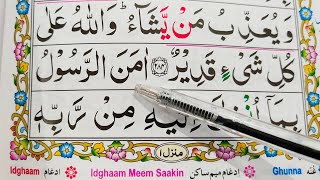 وَيُعَذِّبُ مَنْ يَّشَآءُ ؕ وَاللّٰهُ عَلٰى
كُلِّ شَىْءٍ قَدِيْرٌ ﴿۲۸۴﴾ اٰمَنَ الرَّسُوْلُ
بِمَآ اُنْزِلَ اِلَيْهِ مِنْ رَّبِّهٖ
منزل ۱
Idghaam ادغام Idghaam Meem Saakin ادغام میم ساکن Ghunna